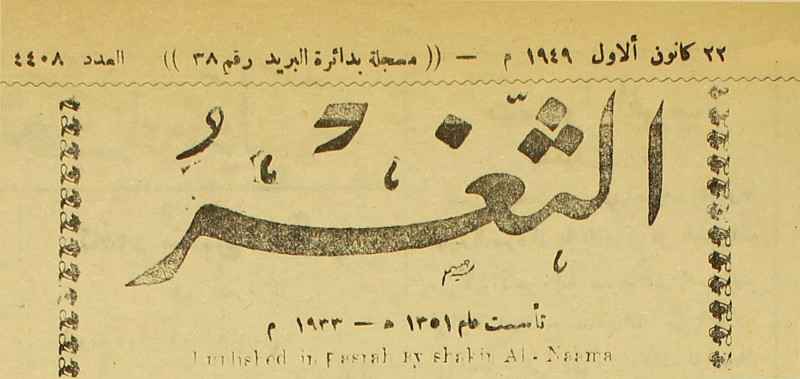 ٢٢ كانون ألاول ١٩٤٩ م — (( مسجلة بدائرة البريد رقم ٣٨ )) العدد ٤٤٠٨
الثَّغْر
تأسست عام ١٣٥١ ه — ١٩٣٣ م
Published in Basrah By Shakir Al - Naama